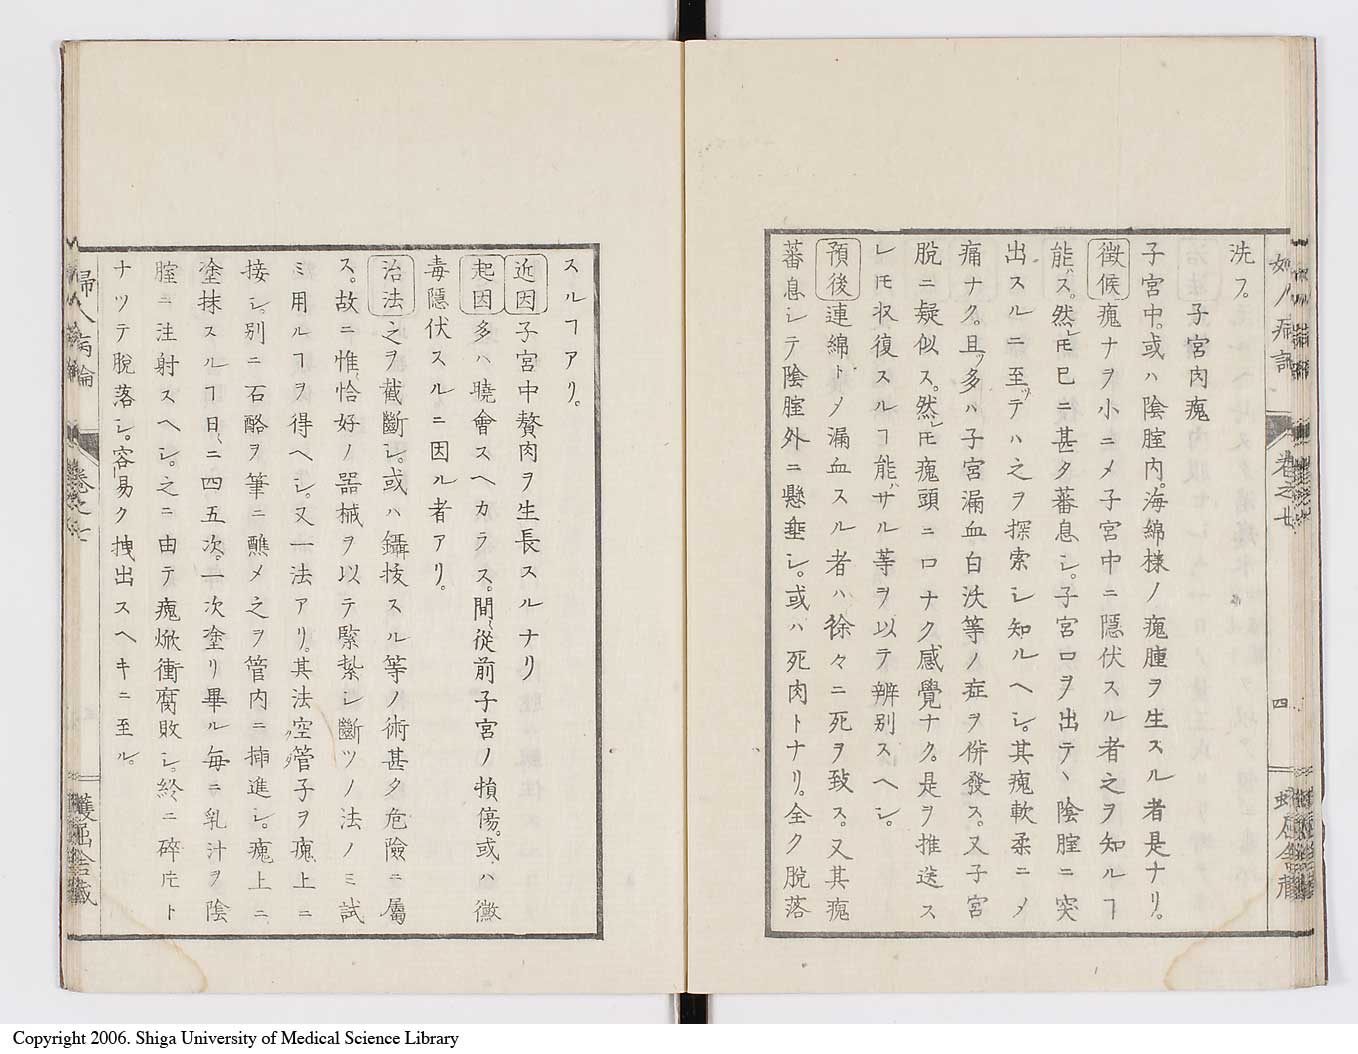 洗フ。
子宮肉瘣
子宮中。或ハ陰腟内。海綿樣ノ瘣腫ヲ生スル者是ナリ。
徴候 瘣ナヲ小ニメ子宮中ニ隱伏スル者之ヲ知ルヿ
能ハス。然レ𪜈巳ニ甚タ蕃息シ。子宮口ヲ出テヽ陰腟ニ突
出スルニ至ッテハ之ヲ探索シ知ルヘシ。其瘣軟柔ニメ
痛ナク。且ツ多ハ子宮漏血白沃等ノ症ヲ併發ス。又子宮
脫ニ疑似ス。然レ𪜈瘣頭ニ口ナク感覺ナク。是ヲ推送ス
レ𪜈収復スルヿ能ハサル等ヲ以テ辨別スヘシ。
預後 連綿トメ漏血スル者ハ徐々ニ死ヲ致ス。又其瘣
蕃息シテ陰腟外ニ懸埀シ。或ハ死肉トナリ。全ク脫落
婦人病論 卷之七 四
スルヿアリ。
近因 子宮中贅肉ヲ生長スルナリ
起因 多ハ曉會スヘカラス。間〻從前子宮ノ損傷。或ハ黴
毒隱伏スルニ因ル者アリ。
治法 之ヲ截斷シ。或ハ鑷抜スル等ノ術甚タ危險ニ屬
ス。故ニ惟〻恰好ノ器械ヲ以テ緊紮シ斷ツノ法ノミ試
ミ用ルヿヲ得ヘシ。又一法アリ。其法空管子ヲ瘣上ニ
接シ。別ニ石酪ヲ筆ニ醮メ之ヲ管内ニ揷進シ。瘣上ニ
塗抹スルヿ日〻ニ四五次。一次塗リ畢ル每ニ乳汁ヲ陰
腟ニ注射スヘシ。之ニ由テ瘣焮衝腐敗シ。終ニ碎片ト
ナツテ脫落シ。容易ク拽出スヘキニ至ル。
婦人病論 卷之七
Copyright 2006. Shiga University of Medical Science Library